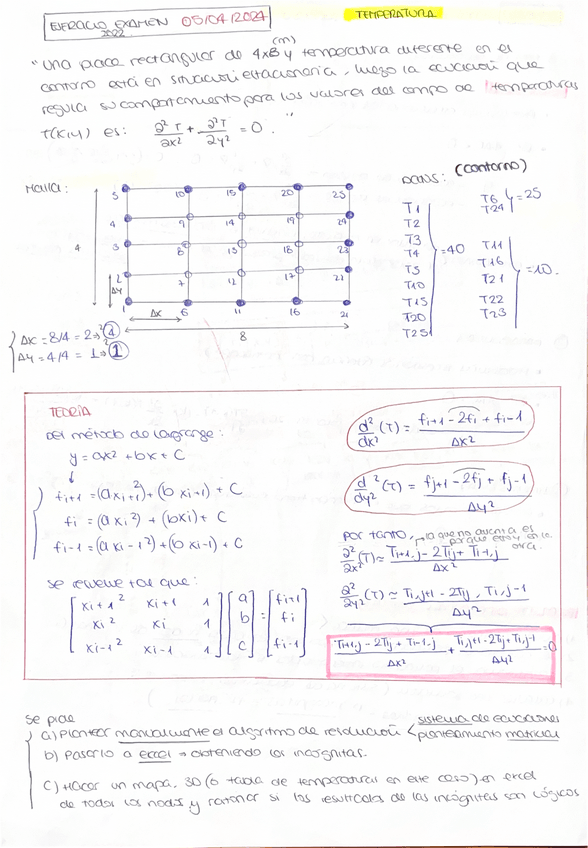 EJERCICIO EXAMEN 05/04/2024
2022
TEMPERATURA
(m)
"Una placa rectangular de 4x8 y temperatura diferente en el
contorno está en situación estacionaria, luego la ecuación que
regula su comportamiento para los valores del campo de temperaturas
T(x,y) es: ∂²T/∂x² + ∂²T/∂y² = 0. "
Malla:
5 10 15 20 25
4 9 14 19 24
3 8 13 18 23
2 7 12 17 22
1 6 11 16 21
4
Δy
Δx
8
Δx = 8/4 = 2 → 2² 4
Δy = 4/4 = 1 → 1² 1
DATOS: (contorno)
T1
T2
T3
T4
T5
T10
T15
T20
T25
=40
T6
T24
=25
T11
T16
T21
T22
T23
=10.
TEORÍA
Del método de Lagrange:
y = ax² + bx + c
fi+1 = (a xi+1²) + (b xi+1) + c
fi = (a xi²) + (b xi) + c
fi-1 = (a xi-1²) + (b xi-1) + c
se resuelve tal que:
[xi+1² xi+1 1] [a] = [fi+1]
[xi² xi 1] [b] [fi]
[xi-1² xi-1 1] [c] [fi-1]
d²/dx² (T) = (fi+1 - 2fi + fi-1)/Δx²
d²/dy² (T) = (fj+1 - 2fj + fj-1)/Δy²
por tanto, → la que no avanza es
porque estoy en la
otra.
∂²/∂x² (T) ≈ (Ti+1,j - 2Tij + Ti-1,j)/Δx²
∂²/∂y² (T) ≈ (Ti,j+1 - 2Tij + Ti,j-1)/Δy²
(Ti+1,j - 2Tij + Ti-1,j)/Δx² + (Ti,j+1 - 2Tij + Ti,j-1)/Δy² = 0
Se pide
a) Plantear manualmente el algoritmo de resolución < sistema de ecuaciones
planteamiento matricial
b) Pasarlo a excel → obteniendo las incógnitas.
c) Hacer un mapa 3D (o tabla de temperaturas en este caso) en excel
de todos los nodos y razonar si los resultados de las incógnitas son lógicos